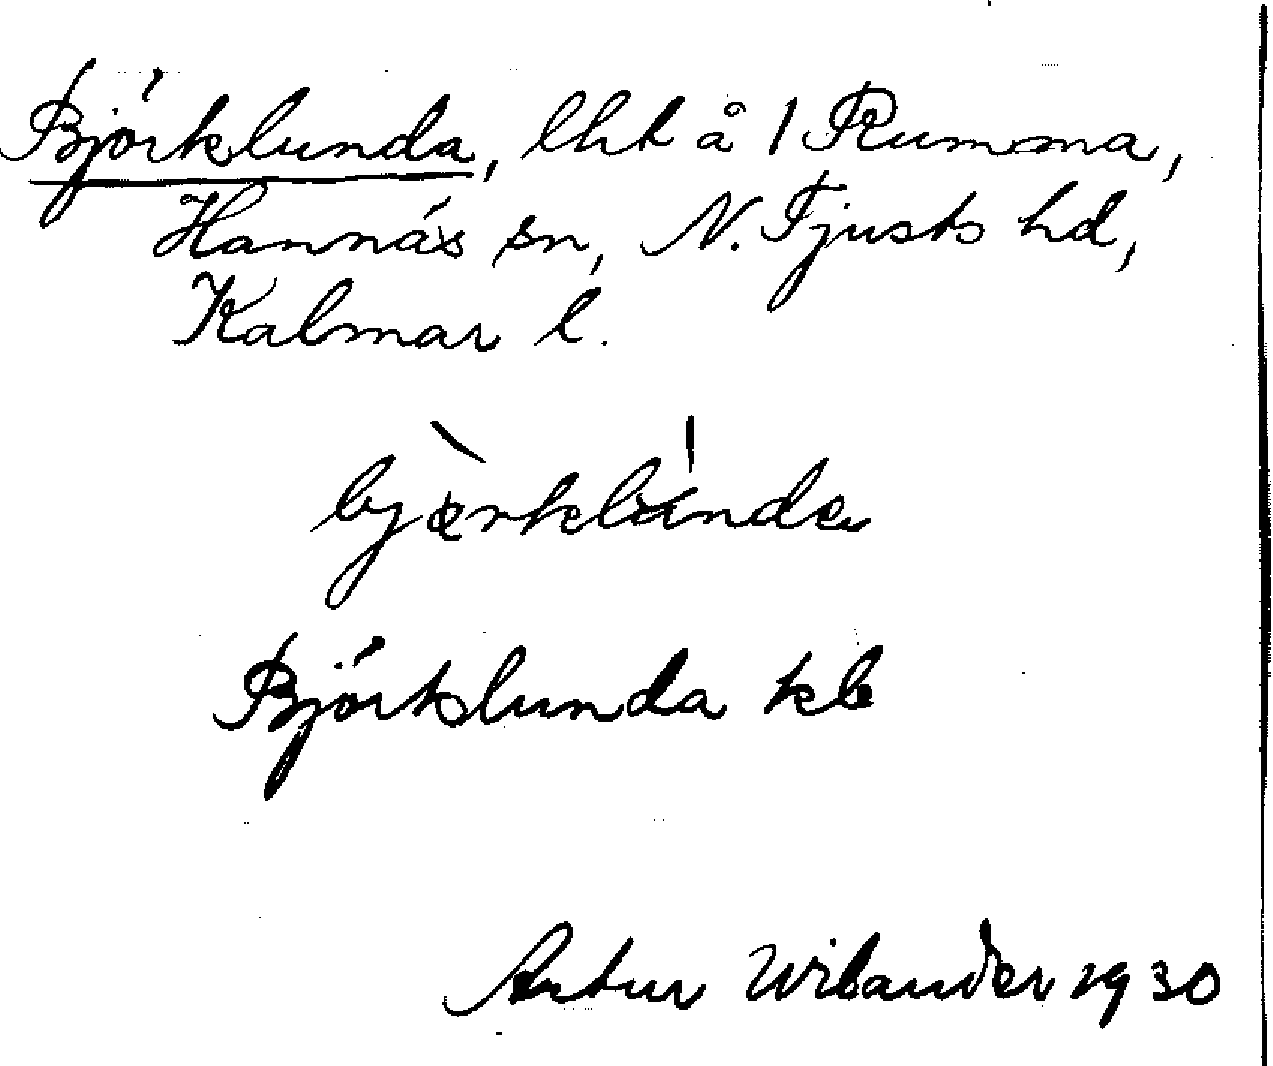 Björklunda, lht å 1 Rumma,
Hannäs sn, N. Tjusts hd,
Kalmar l.
Björklunda kb
Artur Wilander 1930